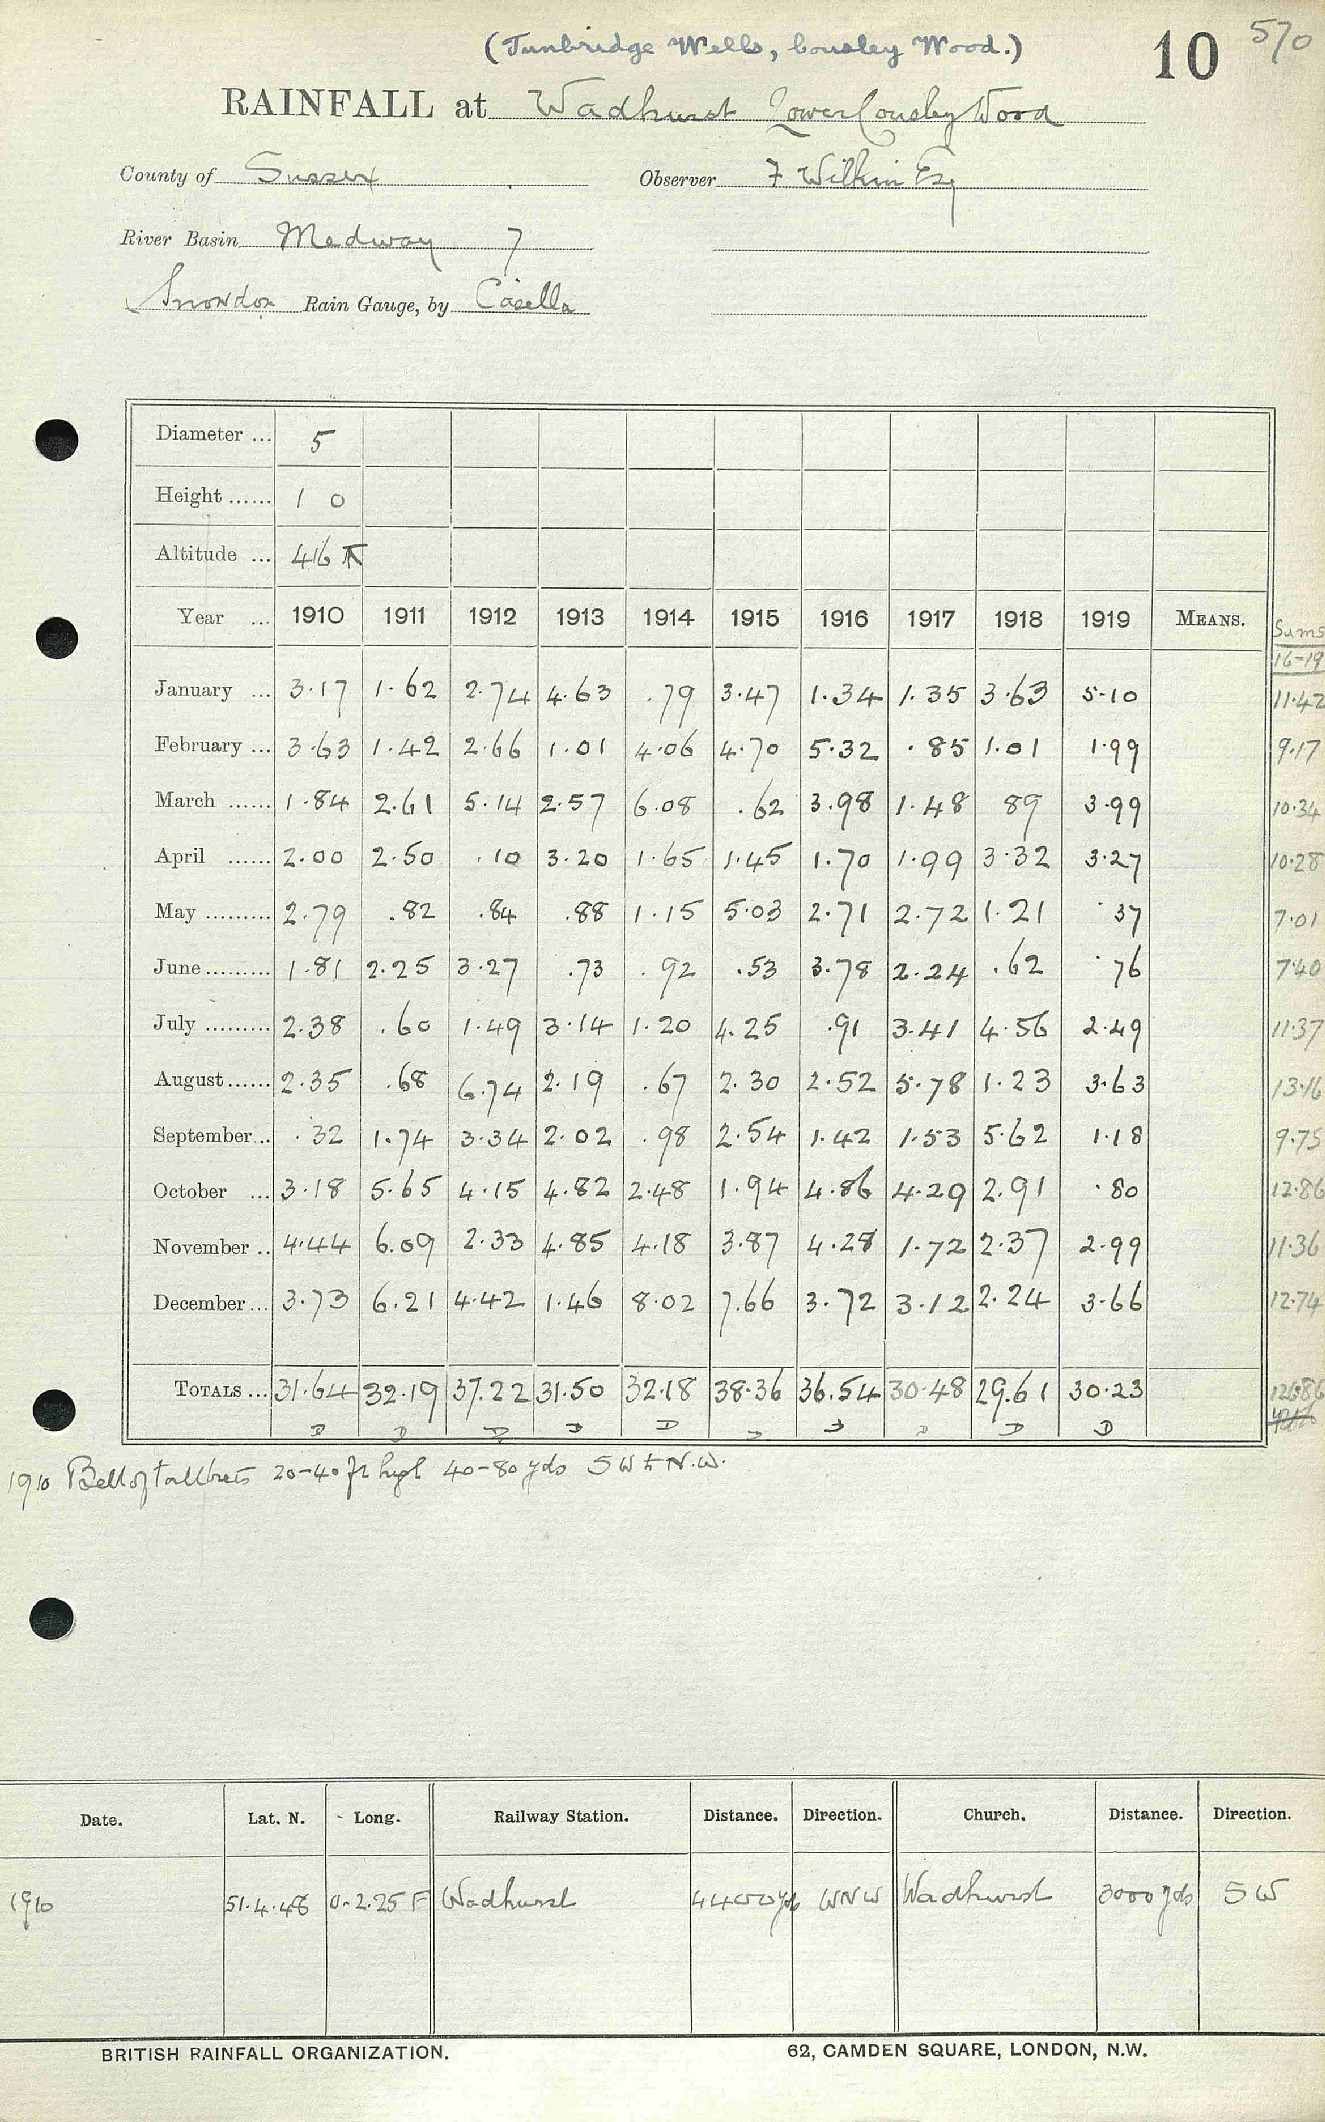 (Tunbridge Wells, Cousley Wood.) 10 570
RAINFALL at Wadhurst Lower Cousley Wood
County of Sussex Observer F Wilkin Esq
River Basin Medway 7
Snowdon Rain Gauge, by Casella
Diameter ... 5
Height ...... 1 0
Altitude ... 416
Year ... 1910 1911 1912 1913 1914 1915 1916 1917 1918 1919 MEANS. Sums
16-19
January ... 3.17 1.62 2.74 4.63 .79 3.47 1.34 1.35 3.63 5.10 11.42
February ... 3.63 1.42 2.66 1.01 4.06 4.70 5.32 .85 1.01 1.99 9.17
March ...... 1.84 2.61 5.14 2.57 6.08 .62 3.98 1.48 89 3.99 10.34
April ...... 2.00 2.50 .10 3.20 1.65 1.45 1.70 1.99 3.32 3.27 10.28
May ......... 2.79 .82 .84 .88 1.15 5.03 2.71 2.72 1.21 .37 7.01
June ......... 1.81 2.25 3.27 .73 .92 .53 3.78 2.24 .62 .76 7.40
July ......... 2.38 .60 1.49 3.14 1.20 4.25 .91 3.41 4.56 2.49 11.37
August ...... 2.35 .68 6.74 2.19 .67 2.30 2.52 5.78 1.23 3.63 13.16
September ... .32 1.74 3.34 2.02 .98 2.54 1.42 1.53 5.62 1.18 9.75
October ... 3.18 5.65 4.15 4.82 2.48 1.94 4.86 4.29 2.91 .80 12.86
November .. 4.44 6.09 2.33 4.85 4.18 3.87 4.28 1.72 2.37 2.99 11.36
December ... 3.73 6.21 4.42 1.46 8.02 7.66 3.72 3.12 2.24 3.66 12.74
TOTALS ... 31.64 32.19 37.22 31.50 32.18 38.36 36.54 30.48 29.61 30.23 126.86
D D D D D D D D D D
1910 Belt of tall trees 20-40 ft high 40-80 yds SW to N.W.
Date. Lat. N. Long. Railway Station. Distance. Direction. Church. Distance. Direction.
1910 51.4.48 0.2.25 E Wadhurst 4400 yds WNW Wadhurst 3000 yds SW
BRITISH RAINFALL ORGANIZATION. 62, CAMDEN SQUARE, LONDON, N.W.